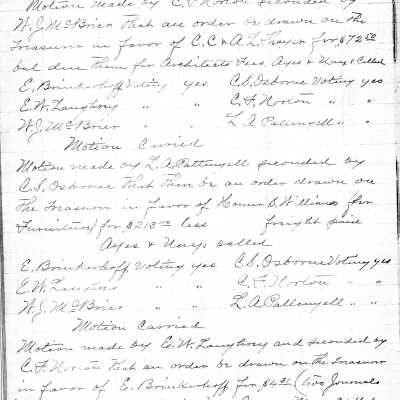 Motion made by C. F. Norton seconded by
W. J. McBrier that an order be drawn on the
Treasurer in favor of C. C. & A. L. Thayer for $72 50
bal due them for Architects Fees, Ayes & Nays Called
E. Brinkerhoff Voting yes C. S. Osborne Voting yes
E. W. Laughrey " " C. F. Norton " "
W. J. McBrier " " L. A. Pattengell " "
Motion Carried
Motion made by L. A. Pattengell seconded by
C. S. Osborne that there be an order drawn on
the Treasurer in favor of Homer D. Williams (for
Furniture) for $213 00 less freight paid
Ayes & Nays called
E. Brinkerhoff Voting yes C. S. Osborne Voting yes
E. W. Laughrey " " C. F. Norton " "
W. J. McBrier " " L. A. Pattengell " "
Motion Carried
Motion made by E. W. Laughrey and seconded by
C. F. Norton that an order be drawn on the Treasurer
in favor of E. Brinkerhoff for (two Journals